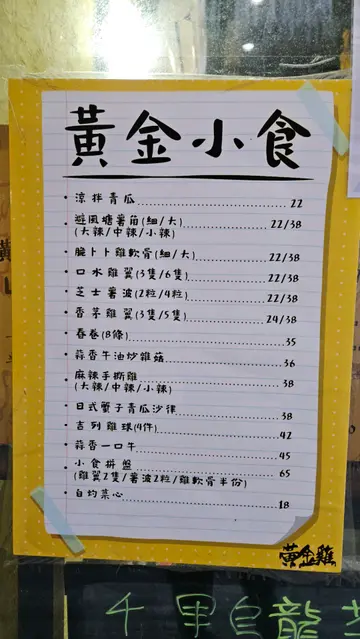 黃金小食
• 涼拌青瓜 22
• 避風塘薯角(細/大) 22/38
(大辣/中辣/小辣)
• 脆卜卜雞軟骨(細/大) 22/38
• 口水雞翼(3隻/6隻) 22/38
• 芝士薯波(2粒/4粒) 22/38
• 香茅雞翼(3隻/5隻) 24/38
• 春卷(8條) 35
• 蒜香牛油炒雜菇 36
• 麻辣手撕雞 38
(大辣/中辣/小辣)
• 日式蟹子青瓜沙律 38
• 吉列雞球(4件) 42
• 蒜香一口牛 45
• 小食拼盤 65
(雞翼2隻/薯波2粒/雞軟骨半份)
• 白灼菜心 18
黃金雞
千里烏龍